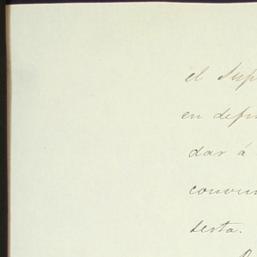 el Sup
en defi
dar á
convin
sesta.